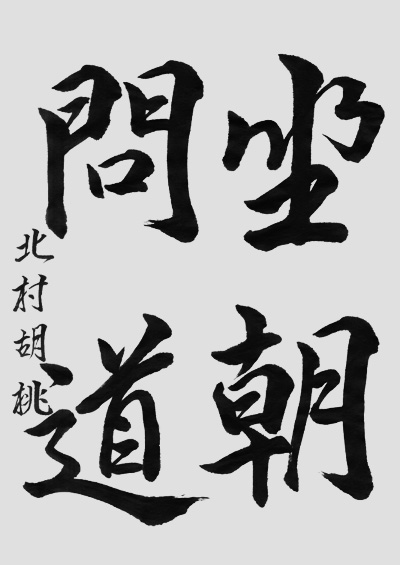 坐朝
問道
北村胡桃